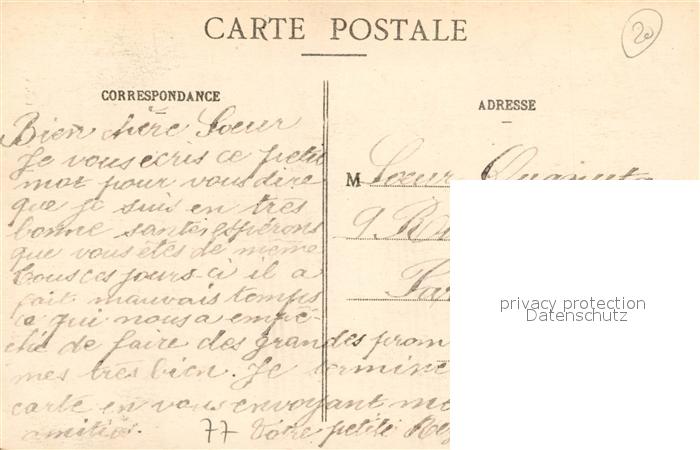 CARTE POSTALE
20
CORRESPONDANCE
ADRESSE
Bien chère Soeur
Je vous écris ce petit
mot pour vous dire
que je suis en très
bonne santé espérons
que vous êtes de même
tous ces jours-ci il a
fait mauvais temps
ce qui nous a empê-
ché de faire des grandes prom
mes très bien. Je termine
carte en vous envoyant me
amitiés.
77 Votre petite
M Soeur
9. R
privacy protection
Datenschutz